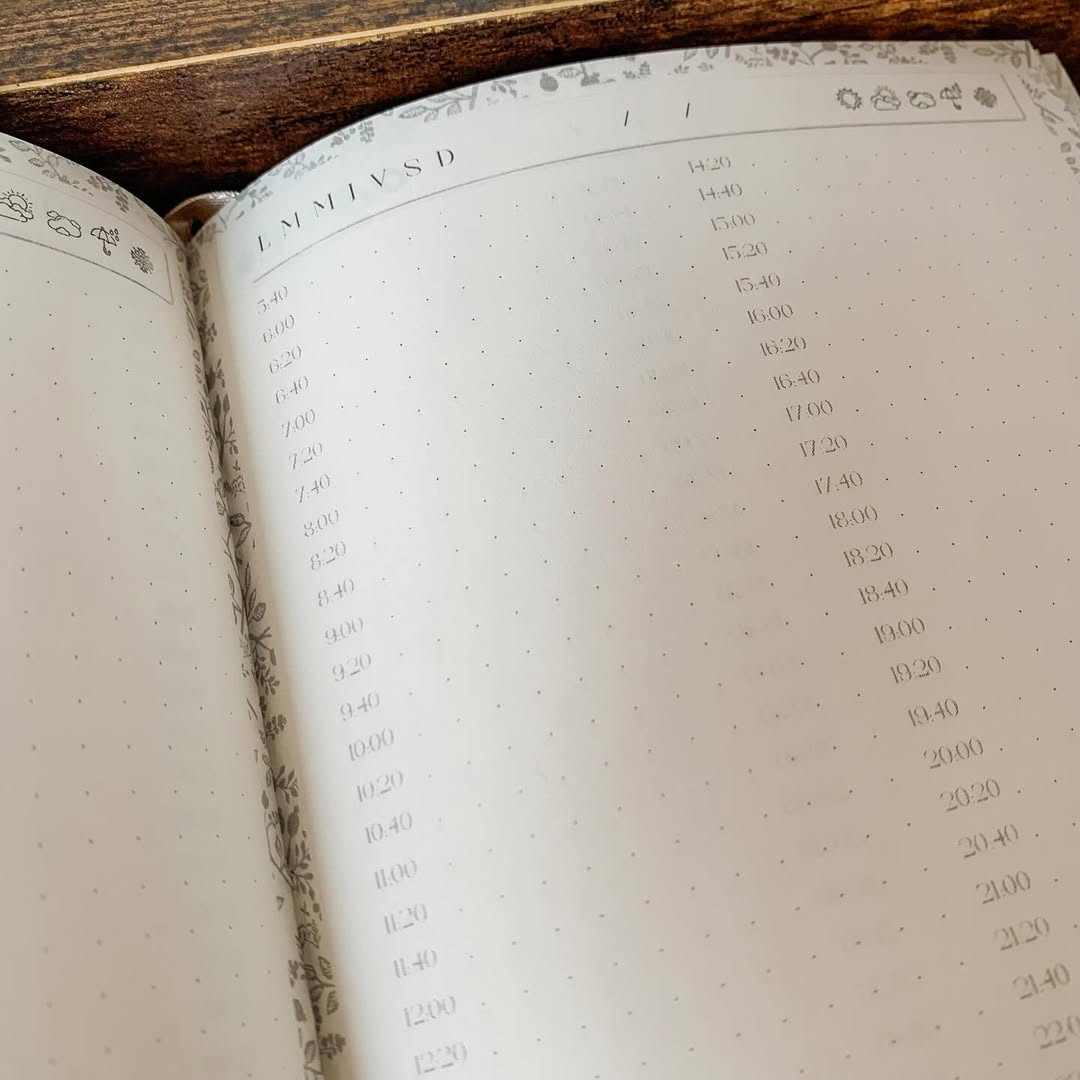 L M M J V S D / /
5:40
6:00
6:20
6:40
7:00
7:20
7:40
8:00
8:20
8:40
9:00
9:20
9:40
10:00
10:20
10:40
11:00
11:20
11:40
12:00
12:20
14:20
14:40
15:00
15:20
15:40
16:00
16:20
16:40
17:00
17:20
17:40
18:00
18:20
18:40
19:00
19:20
19:40
20:00
20:20
20:40
21:00
21:20
21:40